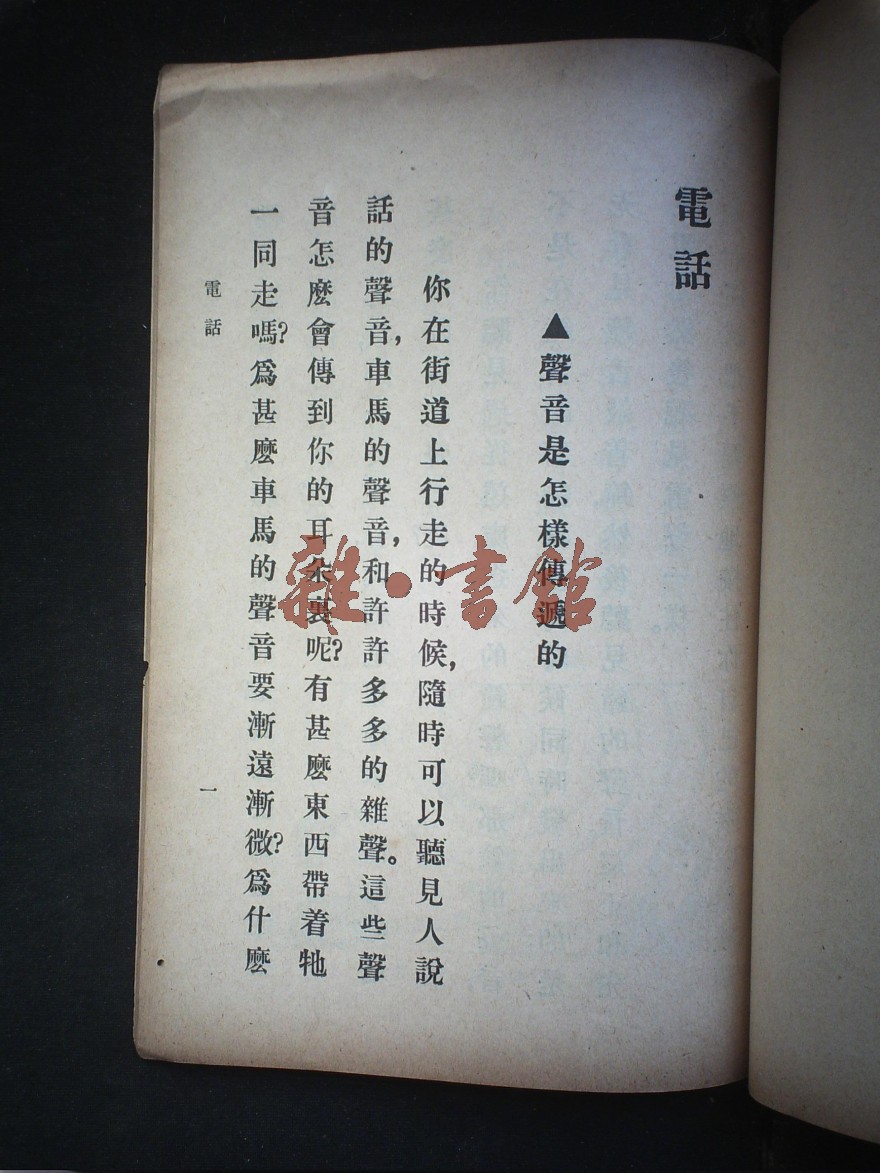 電話
▲聲音是怎樣傳遞的
你在街道上行走的時候，隨時可以聽見人說
話的聲音，車馬的聲音，和許許多多的雜聲。這些聲
音怎麽會傳到你的耳朵裏呢？有甚麽東西帶着牠
一同走嗎？爲甚麽車馬的聲音要漸遠漸微？爲什麽
電話
一
雜·書館